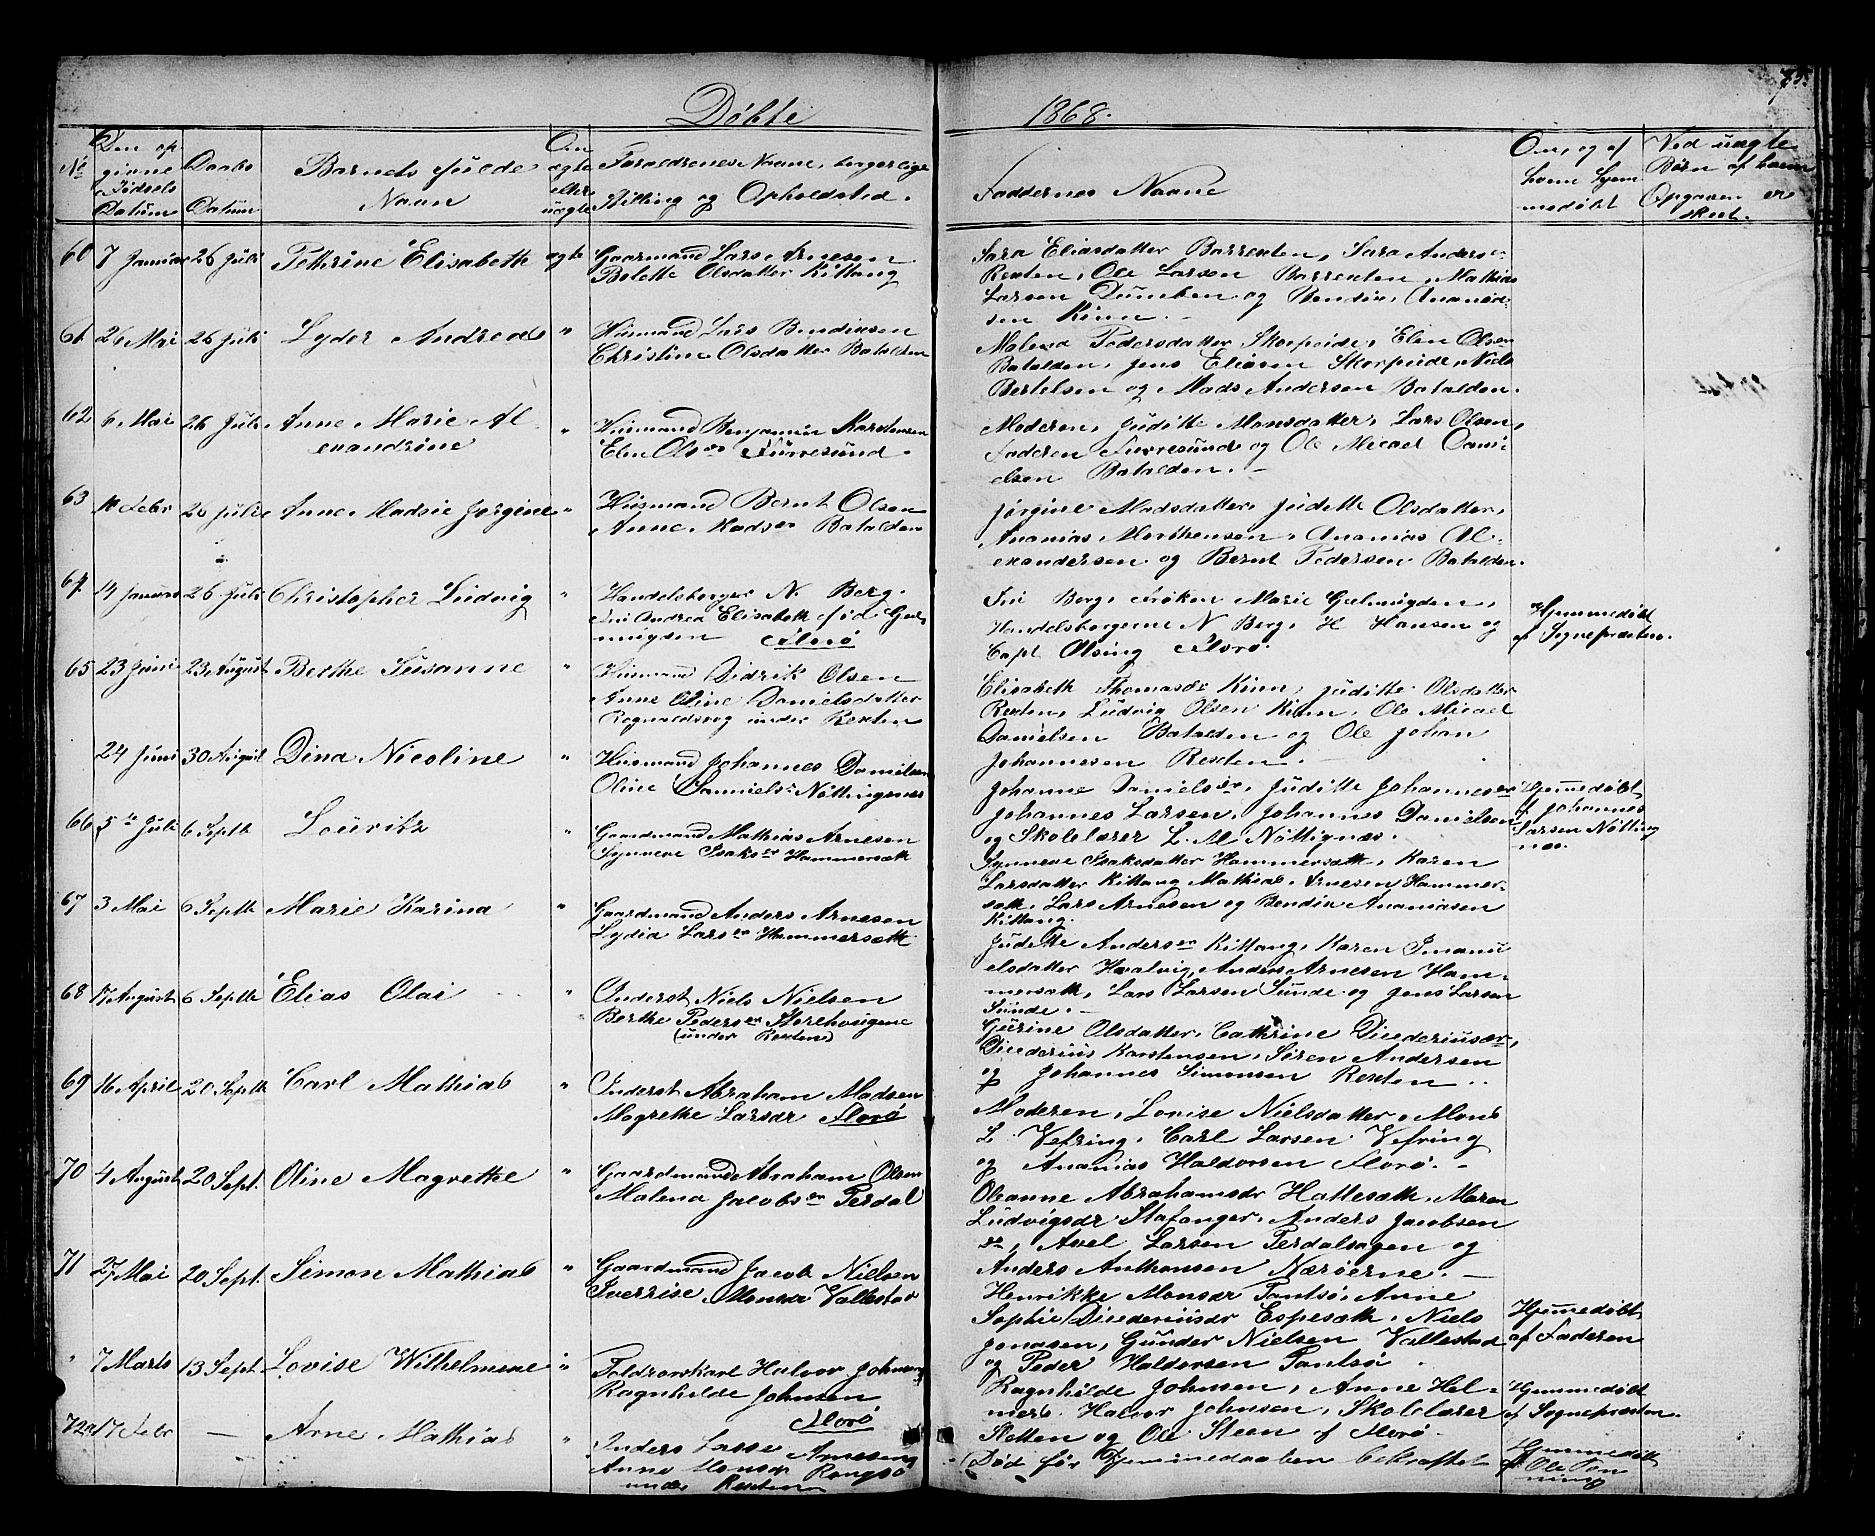 Døbte
1868.
75.
No
Den op
givne
Fødsels
Datum
Daabs
Datum
Barnets fulde
Navn
Om
ægte
eller
uægte
Forældrenes Navne, borgerlige
Stilling og Opholdsted.
Faddernes Navne
Om, og af
hvem hjem
medøbt
Ved uægte
Børn af hvem
Opgaven er
skeet.
60 7 Januar 26 Juli Pethrine Elisabeth ægte Gaarmand Lars Arnesen
Bolette Olsdatter Kittang
Sara Eliasdatter Barrexten, Sara Anders
Rexten, Ole Larsen Barrexten, Mathias
Larsen Dumben og Bendix Ananias
sen Kinn.
61 26 Mai 26 Juli Lyder Andreas " Husmand Lars Bendixsen
Christine Olsdatter Batalden
Malena Pedersdatter Skorpeide, Elen Olsen
Batalden, Jens Eliasen Skorpeide, Niels
Bertelsen og Mads Andersen Batalden.
62 6 Mai 26 Juli Anne Marie Al-
exandrine " Husmand Benjamin Karstensen
Elen Olsdr Furresund.
Moderen, Juditte Monsdatter, Lars Olsen,
Faderen Furresund og Ole Micael Dani-
elsen Batalden.
63 10 Febr 26 Juli Anne Madsie Jørgine " Husmand Bernt Olsen
Anne Madsdr Batalden
Jørgine Madsdatter, Juditte Olsdatter,
Ananias Morthensen, Ananias Al-
exandersen og Bernt Pedersen Batalden.
64 14 Januar 26 Juli Christopher Ludvig " Handelsborger N. Berg.
Fru Andrea Elisabeth fød Gjel-
muyden Florø
Fru Berg, Frøken Marie Gjelmuyden,
Handelsborgerne N Berg, H Hansen og
Capt Olsing Florø.
Hjemmedøbt
af Sognepræsten.
65 23 Juni 23 August Berthe Susanne " Husmand Didrik Olsen
Anne Oline Danielsdatter
Rognaldsvog under Rexten
Elisabeth Thomasdr Kinn, Juditte Olsdatter
Rexten, Ludvig Olsen Kinn, Ole Micael
Danielsen Batalden og Ole Johan
Johannesen Rexten.
24 Juni 30 August Dina Nicoline " Husmand Johannes Danielsen
Oline Samuelsdr Nøttingenes
Johanne Danielsdr, Juditte Johannesdr
Johannes Larsen, Johannes Danielsen
og Skolelærer L. M. Nøttignæs.
Hjemmedøbt
af Johannes
Larsen Nøtting
næs.
66 5te Juli 6 Septb Louritz " Gaardmand Mathias Arnesen
Synneve Isaksdr Hammersæth
Synneve Isaksdatter Hammersæth, Karen
Larsdatter Kittang, Mathias Arnesen Hammer-
sæth, Lars Arnesen og Bendix Ananiasen
Kittang.
67 3 Mai 6 Septb Marie Karina " Gaardmand Anders Arnesen
Lydia Larsdr Hammersæth
Juditte Andersdr Kittang, Karen Imanu
elsdatter Hvalvig, Anders Arnesen Ham-
mersæth, Lars Larsen Sunde og Jens Larsen
Sunde.
68 17 August 6 Septb Elias Olai " Inderst Niels Nielsen
Berthe Pedersdr Storehougene
(under Rexten)
Gurine Olsdatter, Cathrine Diederiusdr,
Diederius Karstensen, Søren Andersen
og Johannes Simonsen Rexten.
69 16 April 20 Septb Carl Mathias " Inderst Abraham Madsen
Magrethe Larsdr Florø
Moderen, Lovise Nielsdatter, Mons
L. Vefring, Carl Larsen Vefring
og Ananias Haldorsen Florø.
70 4 August 20 Sept. Oline Magrethe " Gaardmand Abraham Olsen
Malena Jacobsdr Terdal
Oleanne Abrahamsdr Hattesæth, Maren
Ludvigsdr Stafanger, Anders Jacobsen
do, Axel Larsen Terdalsøgen og
Anders Anthonsen Nærøerne.
71 27 Mai 20 Sept. Simon Mathias " Gaardmand Jacob Nielsen
Sverrise Monsdr Vallestad
Henrikke Monsdr Tansø, Anne
Sophie Diederiusdr Espesæth, Niels
Jonasen, Gunder Nielsen Vallestad
og Peder Haldorsen Tansø.
Hjemmedøbt
af Faderen
" 7 Marts 13 Sept Lovise Wilhelmine " Toldrorskarl Halvor Johnsen
Ragnhilde Johnsen
Florø
Ragnhilde Johnsen, Anne Hel-
mers. Halvor Johnsen, Skolelærer
Sletten og Ole Steen af Florø.
Hjemmedøbt
af Sognepræsten.
72a 17 Febr — Arne Mathias " Inders Lasse Arnesen
Anne Monsdr Rongsø
under Rexten
Død før Hjemmedaaben bekræftet
Hjemmedøbt
af Ole Tøn
ning